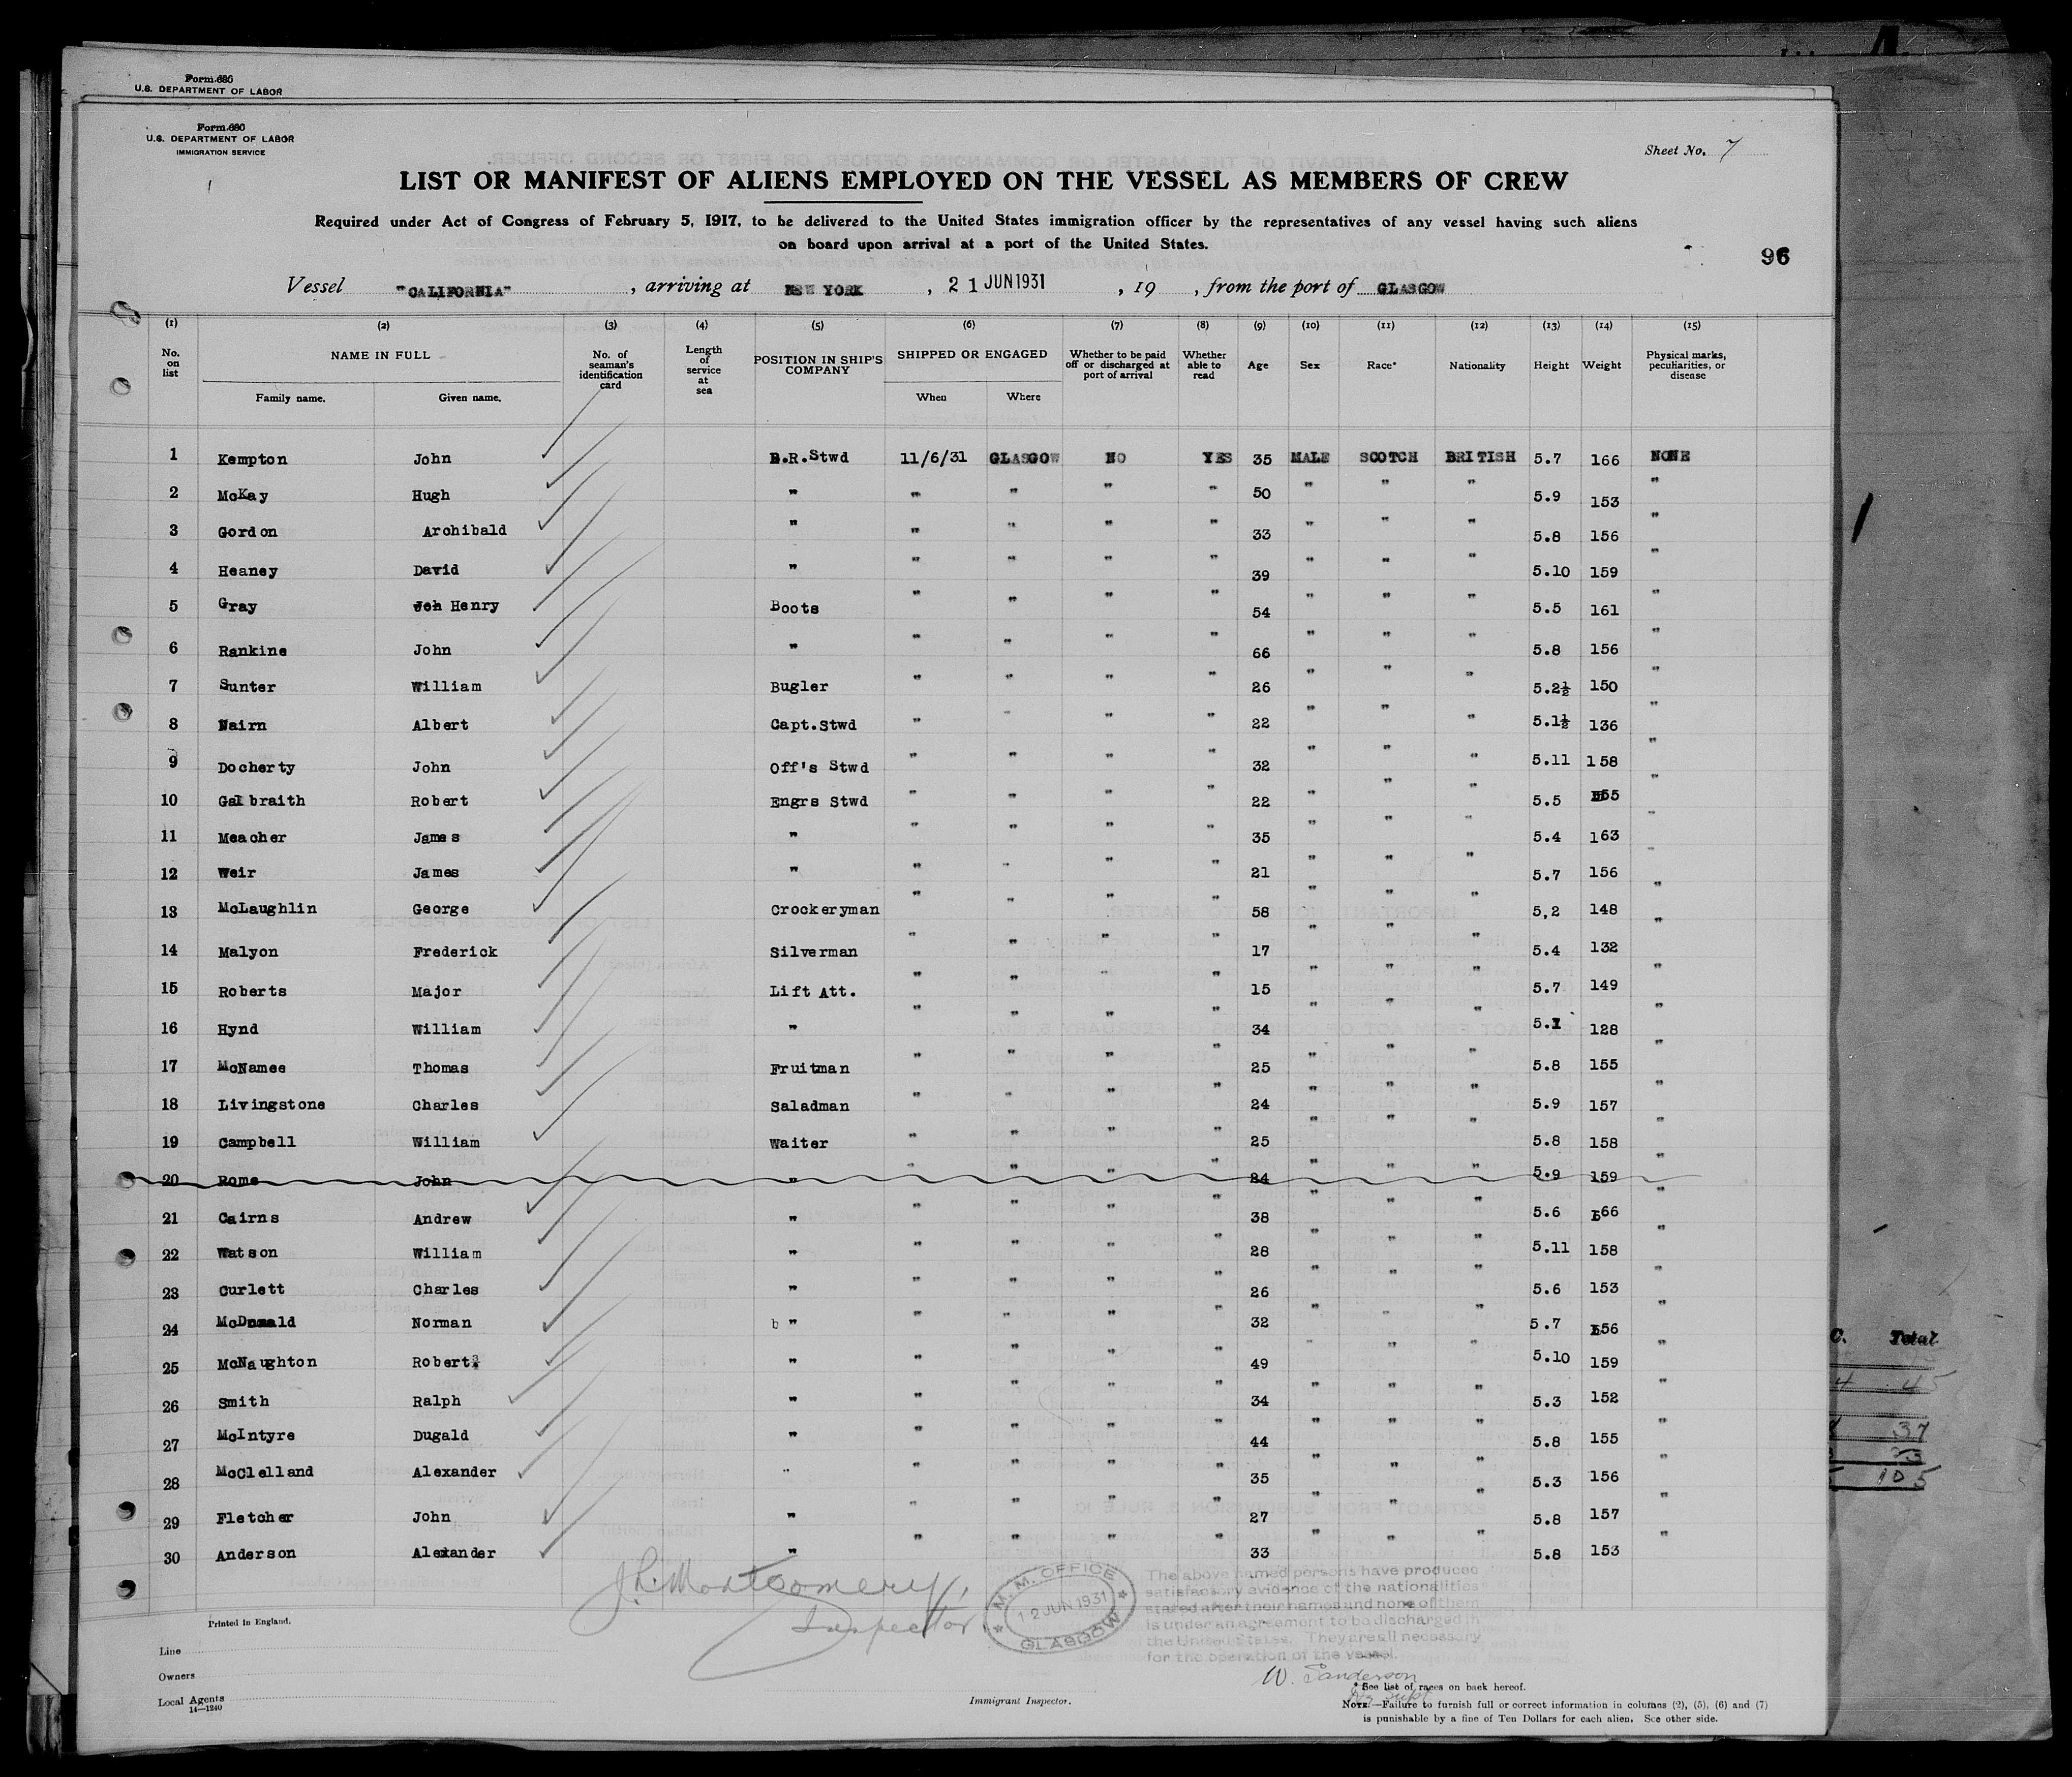 Form 680
U.S. DEPARTMENT OF LABOR
Form 680
U.S. DEPARTMENT OF LABOR
IMMIGRATION SERVICE
Sheet No. 7
LIST OR MANIFEST OF ALIENS EMPLOYED ON THE VESSEL AS MEMBERS OF CREW
Required under Act of Congress of February 5, 1917, to be delivered to the United States immigration officer by the representatives of any vessel having such aliens
on board upon arrival at a port of the United States.
96
Vessel "CALIFORNIA", arriving at NEW YORK, 21 JUN 1931, 19 , from the port of GLASGOW
(1) (2) (3) (4) (5) (6) (7) (8) (9) (10) (11) (12) (13) (14) (15)
No. on list NAME IN FULL No. of seaman's identification card Length of service at sea POSITION IN SHIP'S COMPANY SHIPPED OR ENGAGED Whether to be paid off or discharged at port of arrival Whether able to read Age Sex Race* Nationality Height Weight Physical marks, peculiarities, or disease
Family name. Given name. When Where
1 Kempton John B.R.Stwd 11/6/31 GLASGOW NO YES 35 MALE SCOTCH BRITISH 5.7 166 NONE
2 McKay Hugh " " " " " 50 " " " 5.9 153 "
3 Gordon Archibald " " " " " 33 " " " 5.8 156 "
4 Heaney David " " " " " 39 " " " 5.10 159 "
5 Gray Joh Henry Boots " " " " 54 " " " 5.5 161 "
6 Rankine John " " " " " 66 " " " 5.8 156 "
7 Sunter William Bugler " " " " 26 " " " 5.2½ 150 "
8 Nairn Albert Capt.Stwd " " " " 22 " " " 5.1½ 136 "
9 Docherty John Off's Stwd " " " " 32 " " " 5.11 158 "
10 Galbraith Robert Engrs Stwd " " " " 22 " " " 5.5 155 "
11 Meacher James " " " " " 35 " " " 5.4 163 "
12 Weir James " " " " " 21 " " " 5.7 156 "
13 McLaughlin George Crockeryman " " " " 58 " " " 5,2 148 "
14 Malyon Frederick Silverman " " " " 17 " " " 5.4 132 "
15 Roberts Major Lift Att. " " " " 15 " " " 5.7 149 "
16 Hynd William " " " " " 34 " " " 5.1 128 "
17 McNamee Thomas Fruitman " " " " 25 " " " 5.8 155 "
18 Livingstone Charles Saladman " " " " 24 " " " 5.9 157 "
19 Campbell William Waiter " " " " 25 " " " 5.8 158 "
20 Rome John " " " " " 24 " " " 5.9 159 "
21 Cairns Andrew " " " " " 38 " " " 5.6 166 "
22 Watson William " " " " " 28 " " " 5.11 158 "
23 Curlett Charles " " " " " 26 " " " 5.6 153 "
24 McDonald Norman b " " " " " 32 " " " 5.7 156 "
25 McNaughton Robert " " " " " 49 " " " 5.10 159 "
26 Smith Ralph " " " " " 34 " " " 5.3 152 "
27 McIntyre Dugald " " " " " 44 " " " 5.8 155 "
28 McClelland Alexander " " " " " 35 " " " 5.3 156 "
29 Fletcher John " " " " " 27 " " " 5.8 157 "
30 Anderson Alexander " " " " " 33 " " " 5.8 153 "
C. Total
4 45
37
105
J.R. Montgomery,
Inspector.
M. M. OFFICE
12 JUN 1931
GLASGOW
The above named persons have produced
satisfactory evidence of the nationalities
stated after their names and none of them
is under an agreement to be discharged in
the United States. They are all necessary
for the operation of the vessel.
W. Sanderson
Printed in England.
Line
Owners
Local Agents
14—1240
Immigrant Inspector.
* See list of races on back hereof.
NOTE.—Failure to furnish full or correct information in columns (2), (5), (6) and (7)
is punishable by a fine of Ten Dollars for each alien. See other side.